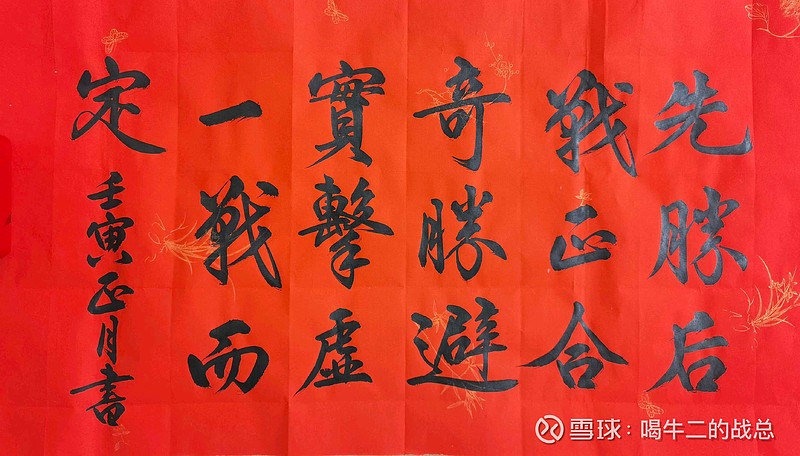 先勝后
戰正合
奇勝避
實擊虛
一戰而
定
壬寅正月書
雪球：喝牛二的战总